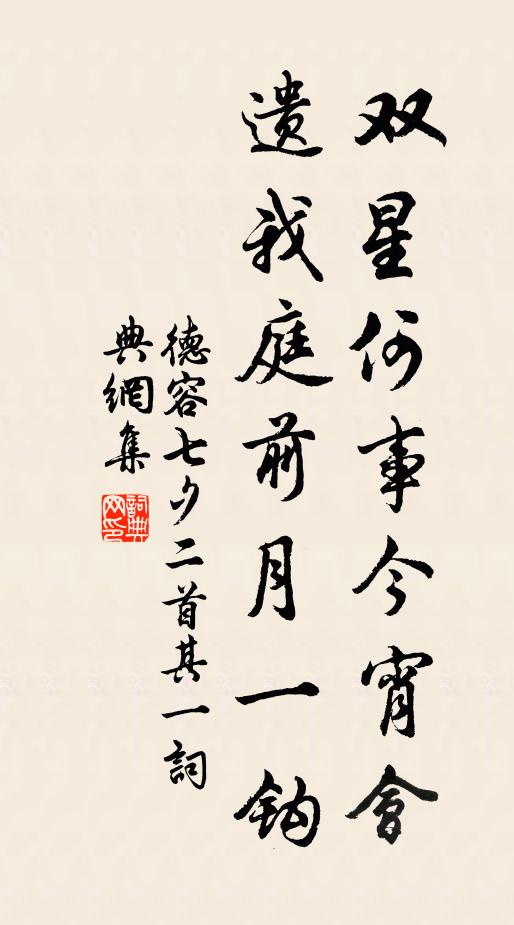 双星何事今宵會
遗我庭前月一鈎
德容七夕二首其一詞
典網集
詞典網印